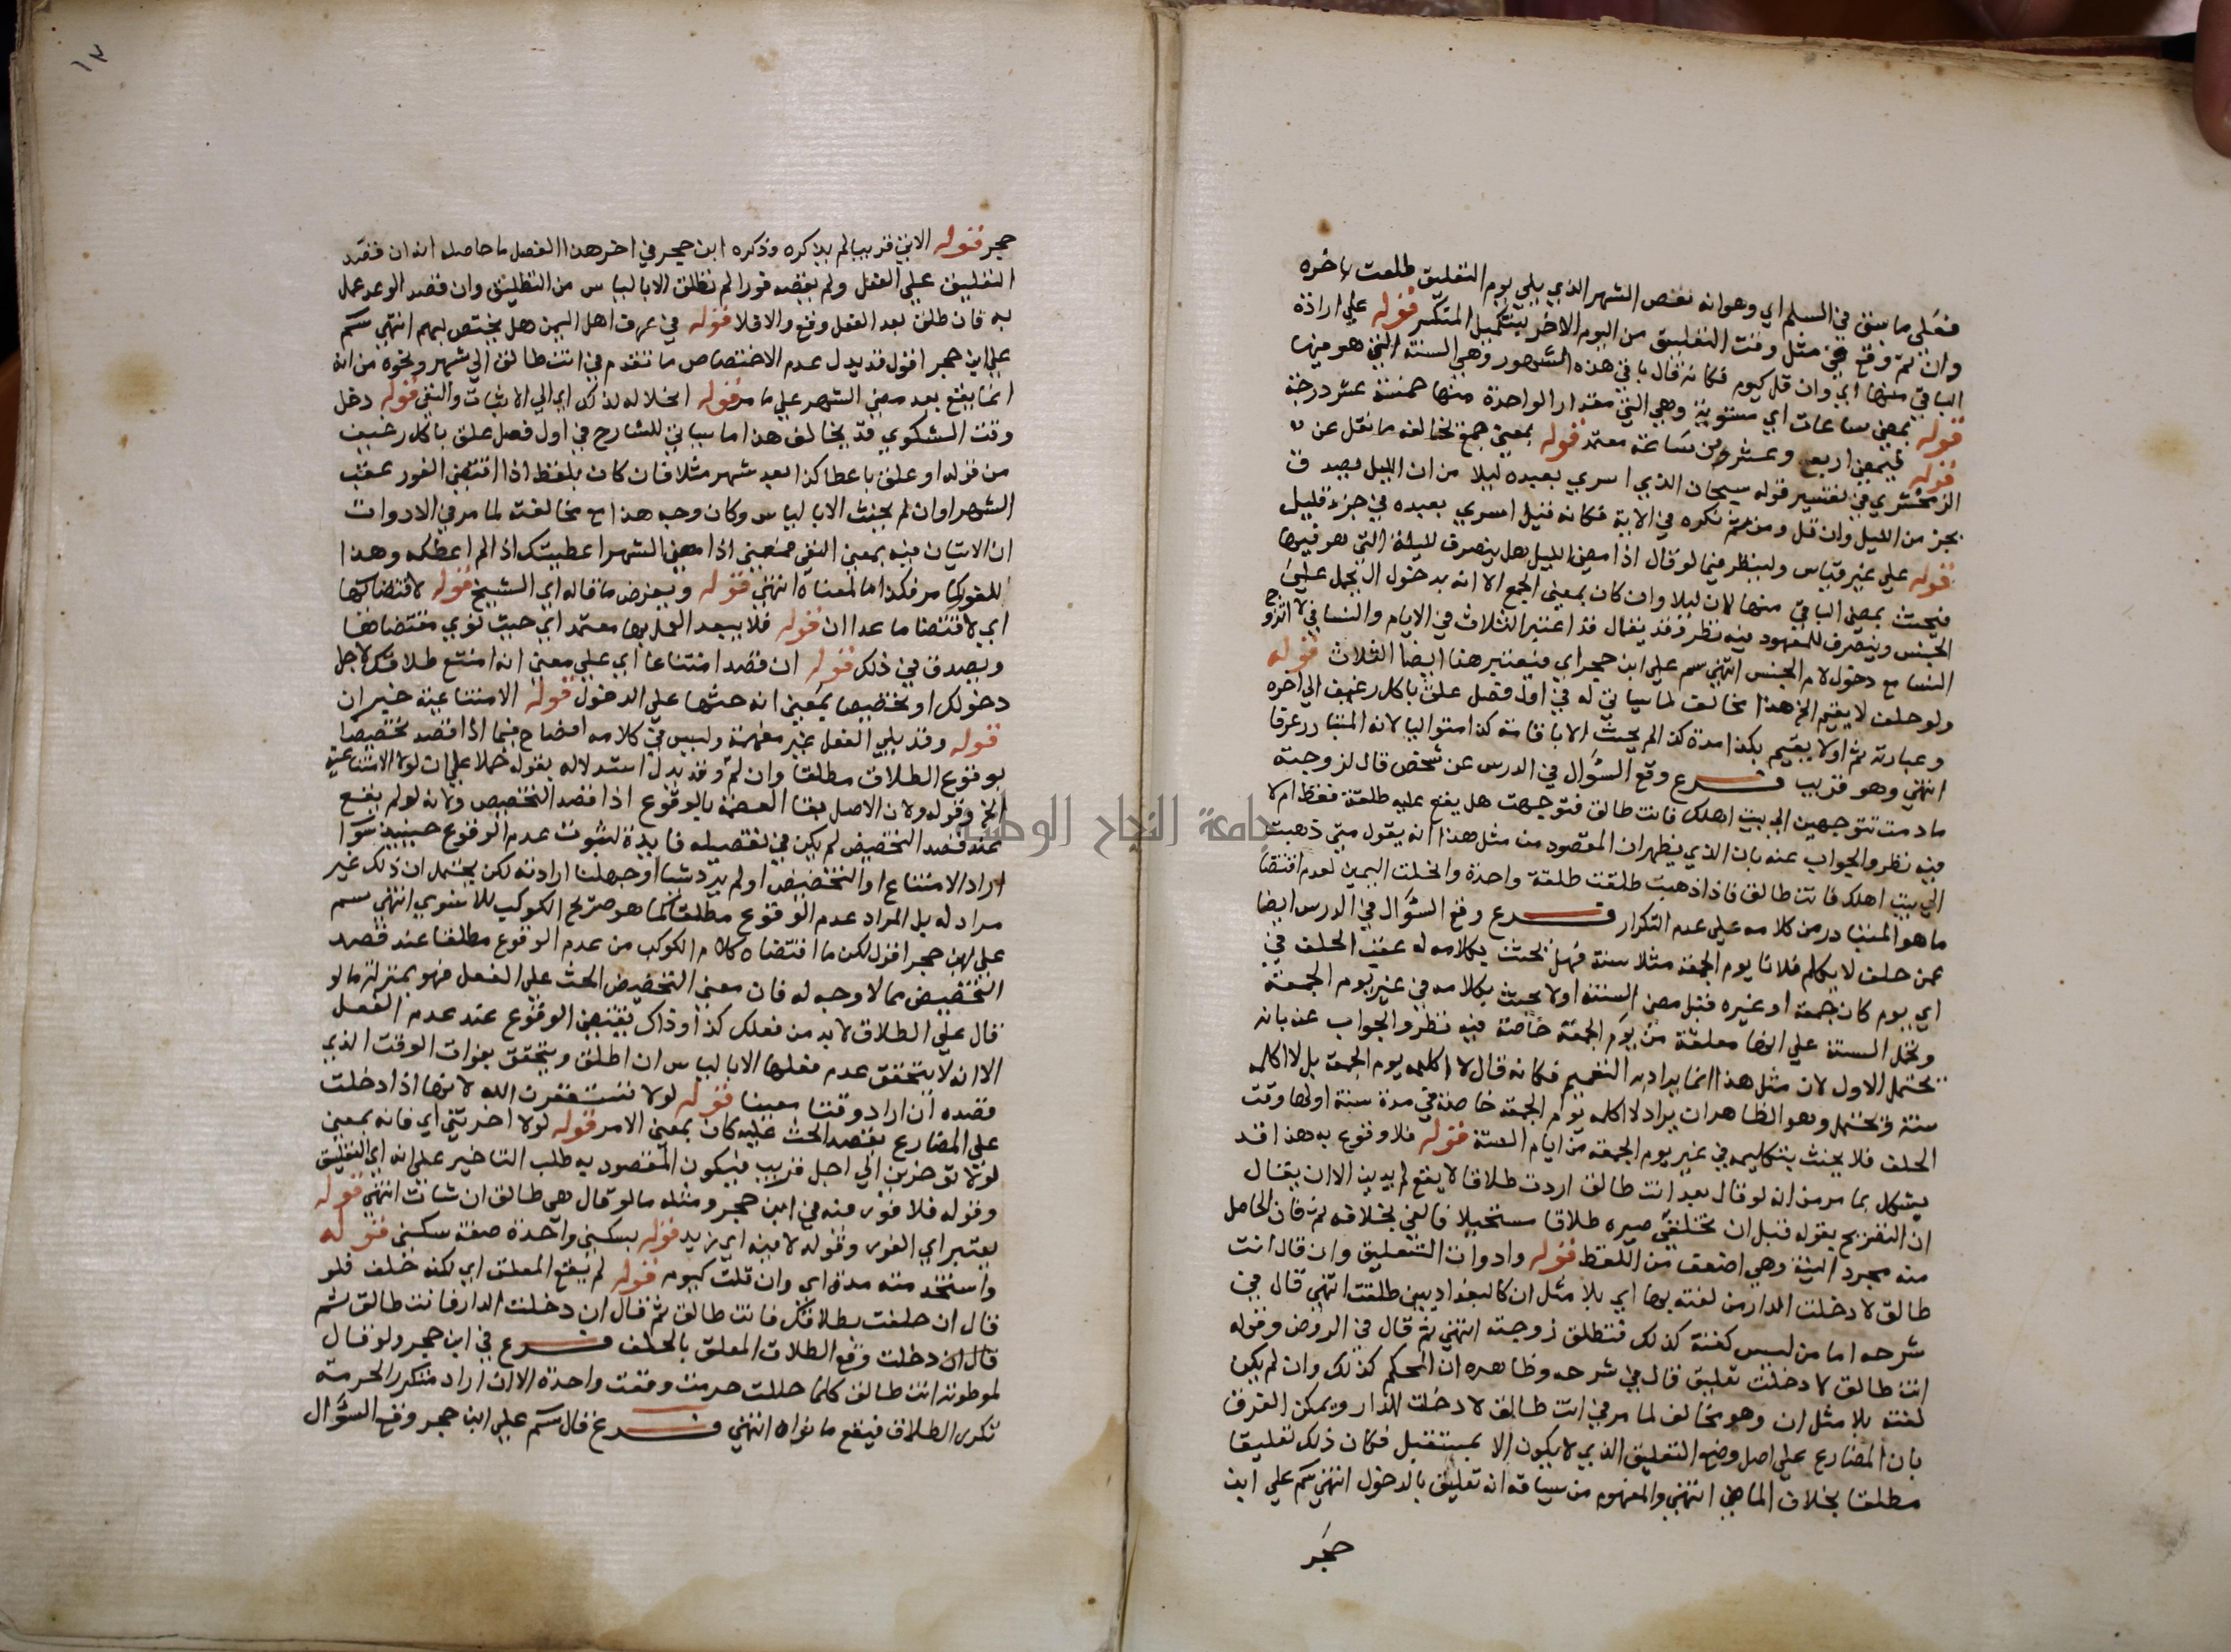 فعلى ما سبق في السلم اي وهو انه نقص الشهر الذي يلي يوم التعليق طلعت باخره
وان تم وقع في مثل وقت التعليق من اليوم الاخر بتكميل المنكسر قوله على ارادة
الباقي منها اي وان قل كيوم فكانه قال باقي هذه الشهور وهي السنة التي هو فيها
قوله بمضي ساعات اي مستوية وهي التي مقدار الواحدة منها خمسة عشر درجة
قوله فبمضي اربع وعشرون ساعة معتمد قوله بمعنى جمع يخالفه ما نقل عن
الزمخشري في تفسير قوله سبحان الذي اسرى بعبده ليلا من ان الليل يصدق
بجزء من الليل وان قل ومن ثم نكره في الاية فكانه قيل اسرى بعبده في جزء قليل
قوله على غير قياس ولينظر فيما لو قال اذا مضى الليل هل ينصرف لليلة التي هو فيها
فيحنث بمضي الباقي منها لان ليلا وان كان بمعنى الجمع الا انه بدخول ال يحمل على
الجنس وينصرف للمعهود فيه نظر وقد يقال قد اعتبر الثلاث في الايام والنسا في لا اتزوج
النسا مع دخول لام الجنس انتهى سم على ابن حجر اي فيعتبر هنا ايضا الثلاث قوله
ولو حلف لا يقيم الخ هذا يخالف لما سياتي له في اول فصل علق باكل رغيف الى اخره
وعبارته ثم او لا يقيم بكذا مدة كذا لم يحنث الا باقامة كذا متواليا لانه المتبادر عرفا
انتهى وهو قريب فرع وقع السؤال في الدرس عن شخص قال لزوجته
ما دمت تتوجهين الى بيت اهلك فانت طالق فتوجهت هل يقع عليه طلقة فقط ام لا
فيه نظر والجواب عنه بان الذي يظهر ان المقصود من مثل هذا انه يقول متى ذهبت
الى بيت اهلك فانت طالق فاذا ذهبت طلقت طلقة واحدة وانحلت اليمين لعدم اقتضا
ما هو المتبادر من كلامه على عدم التكرار فرع وقع السؤال في الدرس ايضا
عمن حلف لا يكلم فلانا يوم الجمعة مثلا سنة فهل يحنث بكلامه له عقب الحلف في
اي يوم كان جمعة او غيره قبل مضي السنة او لا يحنث بكلامه في غير يوم الجمعة
وتحمل السنة على انها معلقة من يوم الجمعة خاصة فيه نظر والجواب عنه بانه
يحتمل الاول لان مثل هذا انما يراد به التعميم فكانه قال لا اكلمه يوم الجمعة بل لا اكلمه
سنة ويحتمل وهو الظاهر ان يراد لا اكلمه يوم الجمعة خاصة في مدة سنة اولها وقت
الحلف فلا يحنث بتكليمه في غير يوم الجمعة من ايام السنة قوله فلا وقوع به هذا قد
يشكل بما مر من انه لو قال بعد انت طالق اردت طلاقا لا يقع لم يدين الا ان يقال
ان التفريع بقوله قبل ان تخلقي صيره طلاقا مستحيلا فالغي بخلافه ثم فان الحاصل
منه مجرد النية وهي اضعف من اللفظ قوله وادوات التعليق وان قال انت
طالق لا دخلت الدار من لغته بها اي بلا مثل ان كالبغداديين طلقت انتهى قال في
شرحه اما من ليس كغته كذلك فتطلق زوجته انتهى ثم قال في الروض وقوله
انت طالق لا دخلت تعليق قال في شرحه وظاهره ان الحكم كذلك وان لم يكن
لغته بلا مثل ان وهو يخالف لما مر في انت طالق لا دخلت الدار ويمكن الفرق
بان المضارع على اصل وضع التعليق الذي لا يكون الا بمستقبل فكان ذلك تعليقا
مطلقا بخلاف الماضي انتهى والمفهوم من سياقه انه تعليق بالدخول انتهى سم على ابن
حجر
١٣
حجر قوله الاتي قريبا لم يذكره وذكره ابن حجر في اخر هذا الفصل ما حاصله انه ان قصد
التعليق على الفعل ولم يقصد فورا لم تطلق الا بالياس من التطليق وان قصد الوعد عمل
به فان طلق بعد الفعل وقع والا فلا قوله في عرف اهل اليمن هل يختص بهم انتهى سم
على ابن حجر اقول قد يدل عدم الاختصاص ما تقدم في انت طالق الى شهر ونحوه من انه
انما يقع بعد مضي الشهر على ما مر قوله انحلاله لذلك اي الى الاثبات والنفي قوله دخل
وقت الشكوى قد يخالف هذا ما سياتي للشارح في اول فصل علق باكل رغيف
من قوله او علق باعطا كذا بعد شهر مثلا فان كان بلفظ اذا اقتضى الفور عقب
الشهر او ان لم يحنث الا بالياس وكان وجه هذا مع مخالفته لما مر في الادوات
ان الاثبات فيه بمعنى النفي فمعنى اذا مضى الشهر اعطيتك اذا لم اعطكه وهذا
للفور كما مر فكذا ما لمعناه انتهى قوله وبفرض ما قاله اي الشيخ قوله لاقتضائها
اي لاقتضا ما عدا ان قوله فلا يبعد العمل بها معتمد اي حيث نوى مقتضاها
ويصدق في ذلك قوله ان قصد امتناعا اي على معنى انه امتنع طلاقك لاجل
دخولك او تحضيضا بمعنى انه حثها على الدخول قوله الامتناعية خبر ان
قوله وقد يلي الفعل غير مفهمة وليس في كلامه افصاح فيما اذا قصد تحضيضا
بوقوع الطلاق مطلقا وان لم وقد يدل استدلاله بقوله حملا على ان لولا الامتناعية
الخ وقوله ولان الاصل بقا العصمة بالوقوع اذا قصد التحضيض ولانه لو لم يقع
عند قصد التحضيض لم يكن في تفصيله فايدة لثبوت عدم الوقوع حينيذ سوا
اراد الامتناع او التحضيض او لم يرد شيا او جهلنا ارادته لكن يحتمل ان ذلك غير
مراد له بل المراد عدم الوقوع مطلقا كما هو صريح الكوكب للاسنوي انتهى سم
على ابن حجر اقول لكن ما اقتضاه كلام الكوكب من عدم الوقوع مطلقا عند قصد
التحضيض مما لا وجه له فان معنى التحضيض الحث على الفعل فهو بمنزلة ما لو
قال على الطلاق لا بد من فعلك كذا وذاك يقتضي الوقوع عند عدم الفعل
الا انه لا يتحقق عدم فعلها الا بالياس ان اطلق ويتحقق بفوات الوقت الذي
قصده ان اراد وقتا معينا قوله لولا تستغفرون الله لانها اذا دخلت
على المضارع بقصد الحث عليه كان بمعنى الامر قوله لولا اخرتني اي فانه بمعنى
لولا تؤخرني الى اجل قريب فيكون المقصود به طلب التاخير على انه اي التعليق
وقوله فلا فور فيه في ابن حجر ومثله ما لو قال هي طالق ان شات انتهى قوله
يعتبر اي الفور وقوله لابنه اي زيد قوله بسكنى واحدة صفة سكنى قوله
واستثنى منه مدة اي وان قلت كيوم قوله لم يقع المعلق اي لكنه حلف فلو
قال ان حلفت بطلاقك فانت طالق ثم قال ان دخلت الدار فانت طالق ثم
قال ان دخلت وقع الطلاق المعلق بالحلف فرع في ابن حجر ولو قال
لموطوته انت طالق كلما حللت حرمت وقعت واحدة الا ان اراد بتكرر الحرمة
تكرر الطلاق فيقع ما نواه انتهى فرع قال سم على ابن حجر وقع السؤال
جامعة النجاح الوطنية